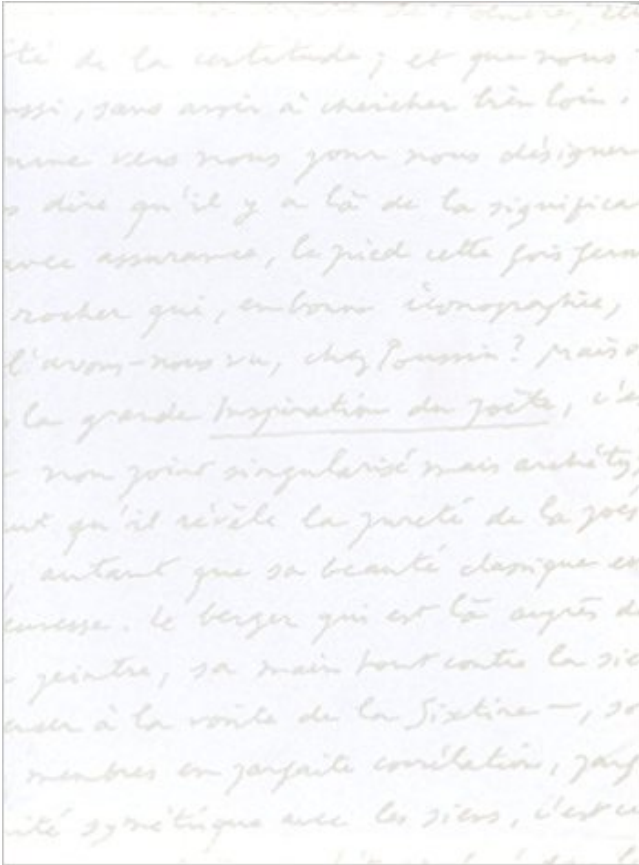 té de la certitude ; et que nous
ussi, sans avoir à chercher bien loin.
mme vers nous pour nous désigner
s dire qu'il y a là de la significa
avec assurance, le pied cette fois ferm
rocher qui, en bonne iconographie,
l'avons-nous vu, chez Poussin ? Mais
la grande Inspiration du poète, c'es
non point singularisé mais archéty
qu'il révèle la pureté de la poé
, autant que sa beauté classique
. Le berger qui est là auprès d
peintre, sa main tout contre la
à la voûte de la Sixtine –, so
membres en parfaite corrélation, parf
ité symétrique avec les siens, c'est